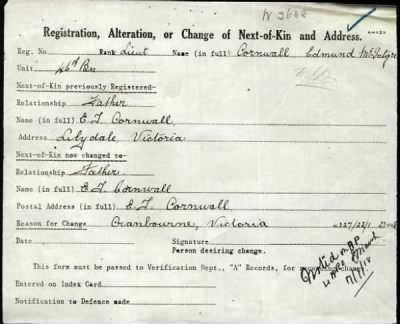 Registration, Alteration, or Change of Next-of-Kin and Address.
Reg. No Rank Lieut Name (in full) Cornwall Edmund
Unit 46th Bn
Next-of-Kin previously Registered-
Relationship Father
Name (in full) E.T. Cornwall
Address Lilydale, Victoria
Next-of-Kin now changed to-
Relationship Father.
Name (in full) E T Cornwall
Postal Address (in full) E. T. Cornwall
Reason for Change Cranbourne, Victoria
Date Signature
Person desiring change.
This form must be passed to Verification Dept., "A" Records, for recording change
Entered on Index Card
Notification to Defence made
Noted